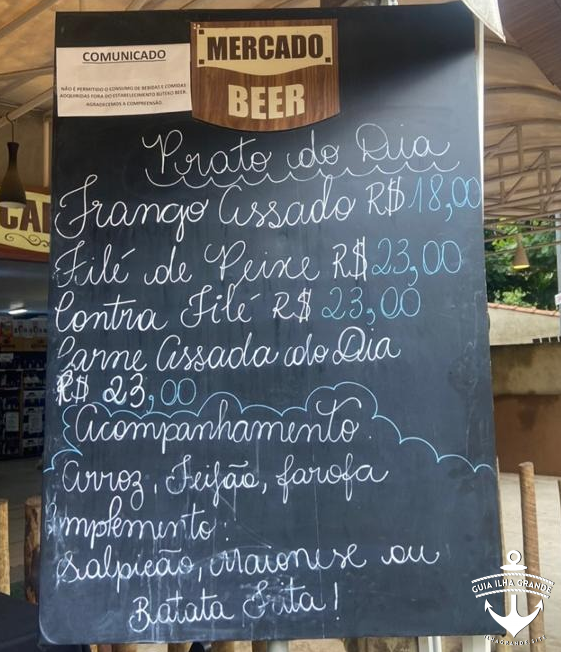 COMUNICADO
NÃO É PERMITIDO O CONSUMO DE BEBIDAS E COMIDAS
ADQUIRIDAS FORA DO ESTABELECIMENTO BUTEKO BEER,
AGRADECEMOS A COMPREENSÃO.
MERCADO
BEER
Prato do Dia
Frango Assado R$ 18,00
Filé de Peixe R$ 23,00
Contra Filé R$ 23,00
Carne Assada do Dia
R$ 23,00
Acompanhamento:
Arroz, Feijão, farofa
implemento:
Salpicão, Maionese ou
Batata Frita!
GUIA ILHA GRANDE